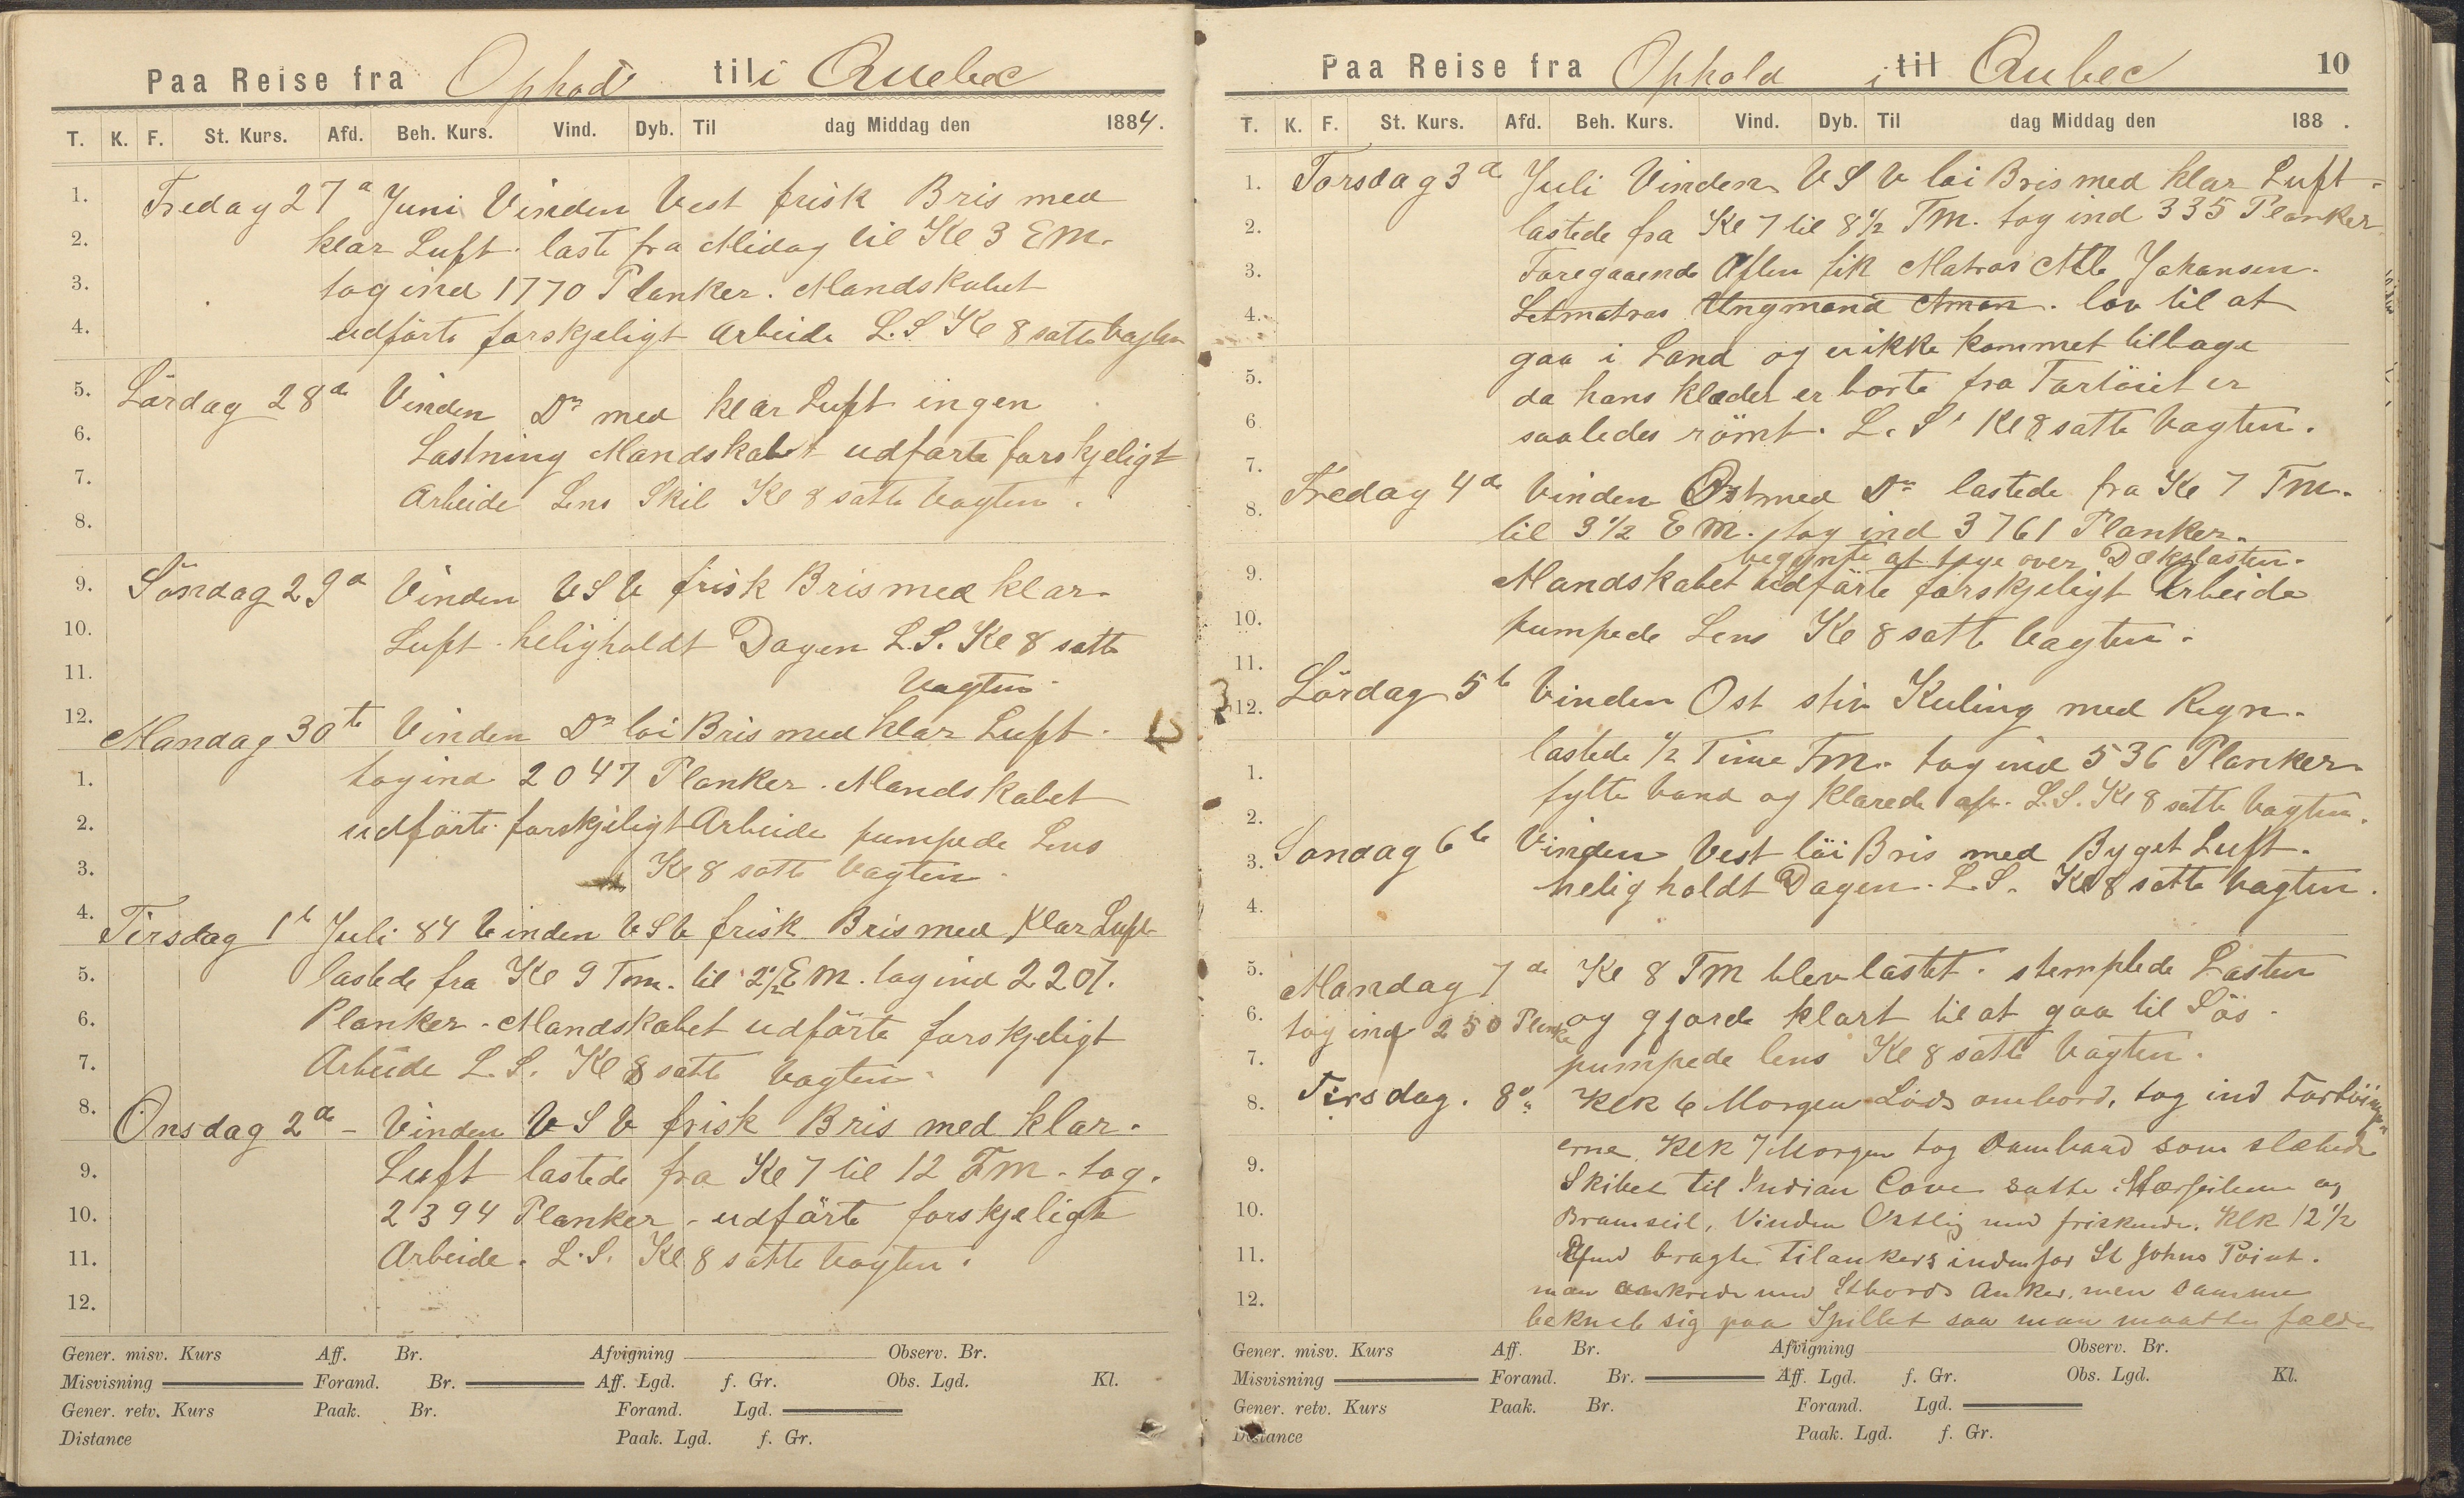 Paa Reise fra Ophod til i Quebec
T. K. F. St. Kurs. Afd. Beh. Kurs. Vind. Dyb. Til dag Middag den 1884.
1. Fredag 27d Juni Vinden Vest frisk Bris med
2. klar Luft. laste fra Midag til Kl 3 EM.
3. tog ind 1770 Planker. Mandskabet
4. udförte forskjeligt Arbeide L.S. Kl 8 satte Vagten
5. Lördag 28de Vinden Do med klar Luft ingen
6. Lastning Mandskabet udförte forskjeligt
7. Arbeide Lens Skib Kl 8 satte Vagten.
8.
9. Söndag 29d Vinden VSV frisk Bris med klar
10. Luft. heligholdt Dagen L.S. Kl 8 satte
11. Vagten.
12. Mandag 30te Vinden Do löi Bris med klar Luft.
1. tog ind 2047 Planker. Mandskabet
2. udförte forskjeligt Arbeide pumpede Lens
3. Kl 8 satte Vagten.
4. Tirsdag 1te Juli 84 Vinden VSV frisk Bris med Klar Luft
5. lastede fra Kl 9 Fm. til 2 1/2 EM. tog ind 2207.
6. Planker. Mandskabet udförte forskjeligt
7. Arbeide L.S. Kl 8 satte Vagten.
8. Onsdag 2de - Vinden VSV frisk Bris med klar.
9. Luft lastede fra Kl 7 til 12 FM. tog.
10. 2394 Planker. udförte forskjeligt
11. Arbeide. L.S. Kl 8 satte Vagten.
12.
Gener. misv. Kurs Aff. Br. Afvigning Observ. Br.
Misvisning Forand. Br. Aff. Lgd. f. Gr. Obs. Lgd. Kl.
Gener. retv. Kurs Paak. Br. Forand. Lgd.
Distance Paak. Lgd. f. Gr.
Paa Reise fra Ophold i til Qubec 10
T. K. F. St. Kurs. Afd. Beh. Kurs. Vind. Dyb. Til dag Middag den 188 .
1. Torsdag 3de Juli Vinden VSV löi Bris med klar Luft.
2. lastede fra Kl 7 til 8 1/2 FM. tog ind 335 Planker
3. Foregaaende Aften fik Matros Johansen.
4. Letmatros Ungmand Aman. lov til at
gaa i Land og er ikke kommet tilbage
5. da hans klæder er borte fra Fartöiet er
6. saaledes römt. L.S. Kl 8 satte Vagten.
7. Fredag 4de Vinden Ost med Do lastede fra Kl 7 FM.
8. til 3 1/2 EM. tog ind 3761 Planker.
begynte at tage over Dækslasten.
9. Mandskabet udförte forskjeligt Arbeide
10. pumpede Lens Kl 8 satte Vagten.
11. Lördag 5te Vinden Ost stiv Kuling med Regn.
12.
1. lastede 1/2 Time Fm. tog ind 536 Planker
2. fylte Vand og klarede op. L.S. Kl 8 satte Vagten.
3. Söndag 6te Vinden Vest löi Bris med Byget Luft.
4. heligholdt Dagen. L.S. Kl 8 satte Vagten.
5. Mandag 7de Kl 8 FM blev lastet. stemplede Lasten
6. tog ind 250 Planke og gjorde klart til at gaa til Sös.
7. pumpede lens Kl 8 satte Vagten.
8. Tirsdag. 8de Klk 6 Morgen Lods ombord, tog ind Fortöining-
9. erne. Klk 7 Morgen tog Dambaad som slæbede
Skibet til Indian Cove satte Mærseilene og
10. Bramseil, Vinden Østlig med friskende. Klk 12 1/2
11. Efmd bragtes tilankers indenfor St Johns Point.
12. man ankrede med Stbords Anker, men samme
bekneb sig paa Spillet saa man maatte fælde
Gener. misv. Kurs Aff. Br. Afvigning Observ. Br.
Misvisning Forand. Br. Aff. Lgd. f. Gr. Obs. Lgd. Kl.
Gener. retv. Kurs Paak. Br. Forand. Lgd.
Distance Paak. Lgd. f. Gr.